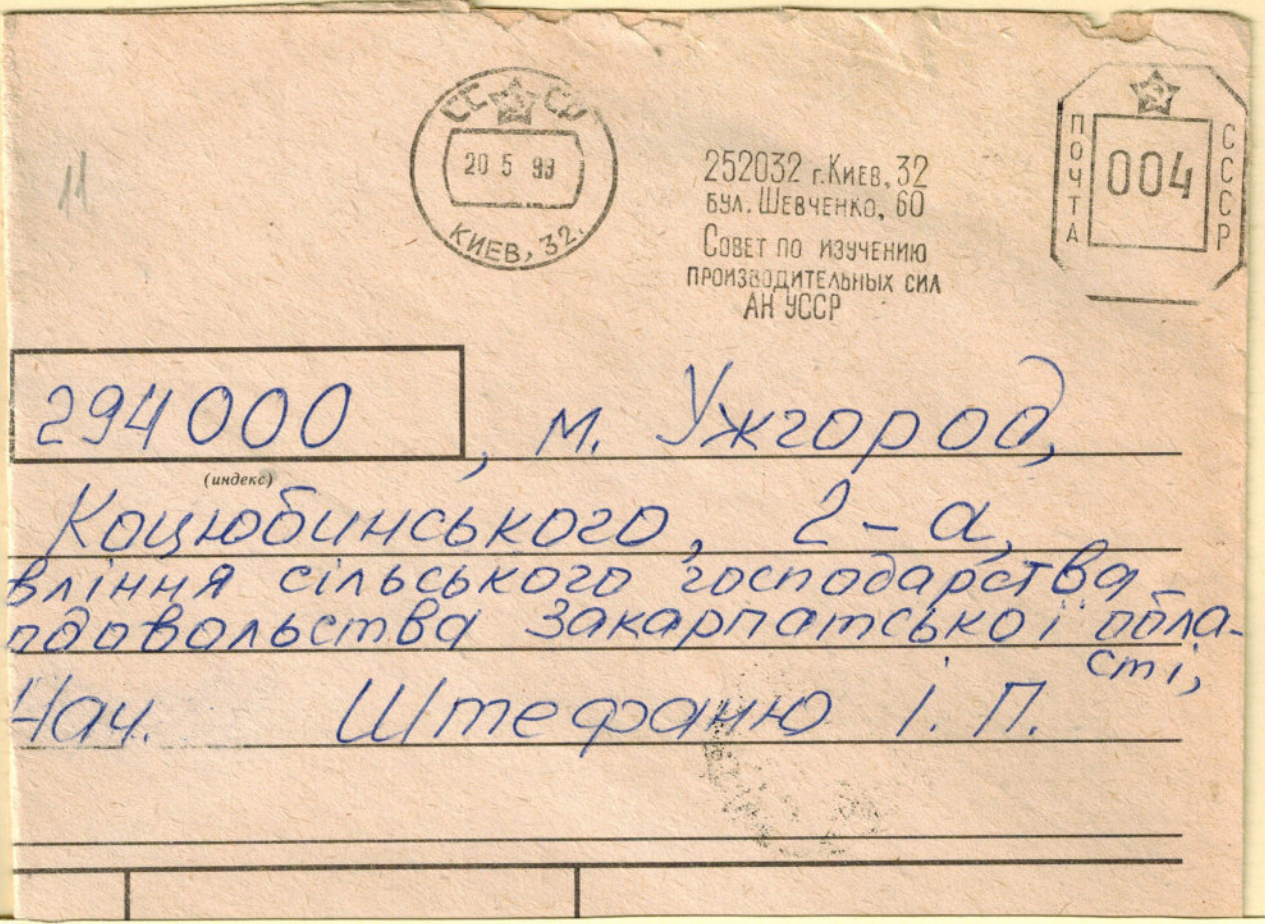 11
СССР
20 5 93
КИЕВ, 32.
252032 г. КИЕВ, 32
БУЛ. ШЕВЧЕНКО, 60
СОВЕТ ПО ИЗУЧЕНИЮ
ПРОИЗВОДИТЕЛЬНЫХ СИЛ
АН УССР
ПОЧТА
004
СССР
294000, м. Ужгород,
(индекс)
Коцюбинського, 2-а,
вління сільського господарства
одовольства Закарпатської обла-
сті,
Нач. Штефаню І. П.